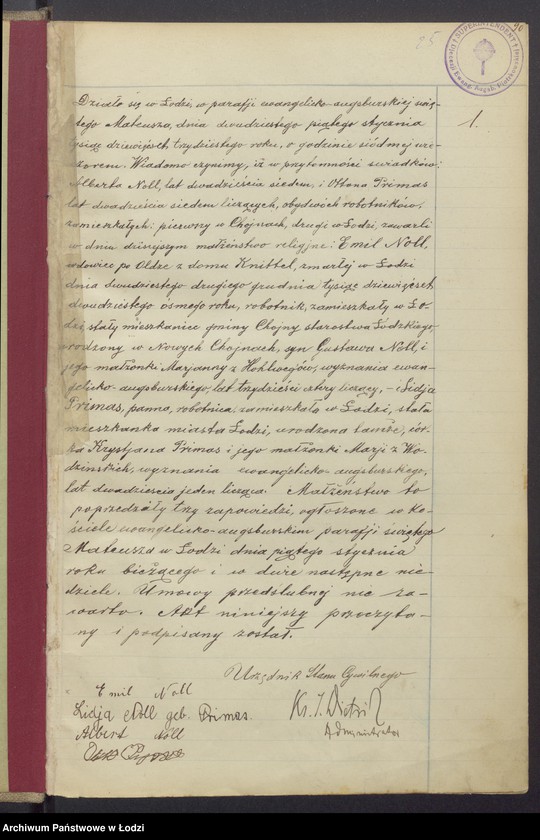 25
90
1.
Działo się w Łodzi, w parafji ewangelicko-augsburskiej świę-
tego Mateusza, dnia dwudziestego piątego stycznia
tysiąc dziewięćset trzydziestego roku, o godzinie siódmej wie-
czorem. Wiadomo czynimy, iż w przytomności świadków:
Alberta Noll, lat dwadzieścia siedem, i Ottona Primas
lat dwadzieścia siedem liczących, obydwóch robotników,
zamieszkałych: pierwszy w Chojnach, drugi w Łodzi, zawarli
w dniu dzisiejszym małżeństwo religijne: Emil Noll,
wdowiec po Oldze z domu Knittel, zmarłej w Łodzi
dnia dwudziestego drugiego grudnia tysiąc dziewięćset
dwudziestego ósmego roku, robotnik, zamieszkały w Ło-
dzi, stały mieszkaniec gminy Chojny starostwa Łódzkiego
urodzony w Nowych Chojnach, syn Gustawa Noll, i
jego małżonki Marjanny z Hohlwegów, wyznania ewan-
gelicko-augsburskiego, lat trzydzieści cztery liczący, - i Lidja
Primas, panna, robotnica, zamieszkała w Łodzi, stała
mieszkanka miasta Łodzi, urodzona tamże, cór-
ka Krystjana Primas i jego małżonki Marji z Wo-
dzinskich, wyznania ewangelicko-augsburskiego,
lat dwadzieścia jeden licząca. Małżeństwo to
poprzedzały trzy zapowiedzi, ogłoszone w ko-
ściele ewangelicko-augsburskim parafji świętego
Mateusza w Łodzi dnia piątego stycznia
roku bieżącego i w dwie następne nie-
dziele. Umowy przedślubnej nie za-
warto. Akt niniejszy przeczyta-
ny i podpisany został.
Urzędnik Stanu Cywilnego
Emil Noll
Lidja Noll geb. Primas.
Albert Noll
Ks. J. Dietrich
Administrator
Archiwum Państwowe w Łodzi